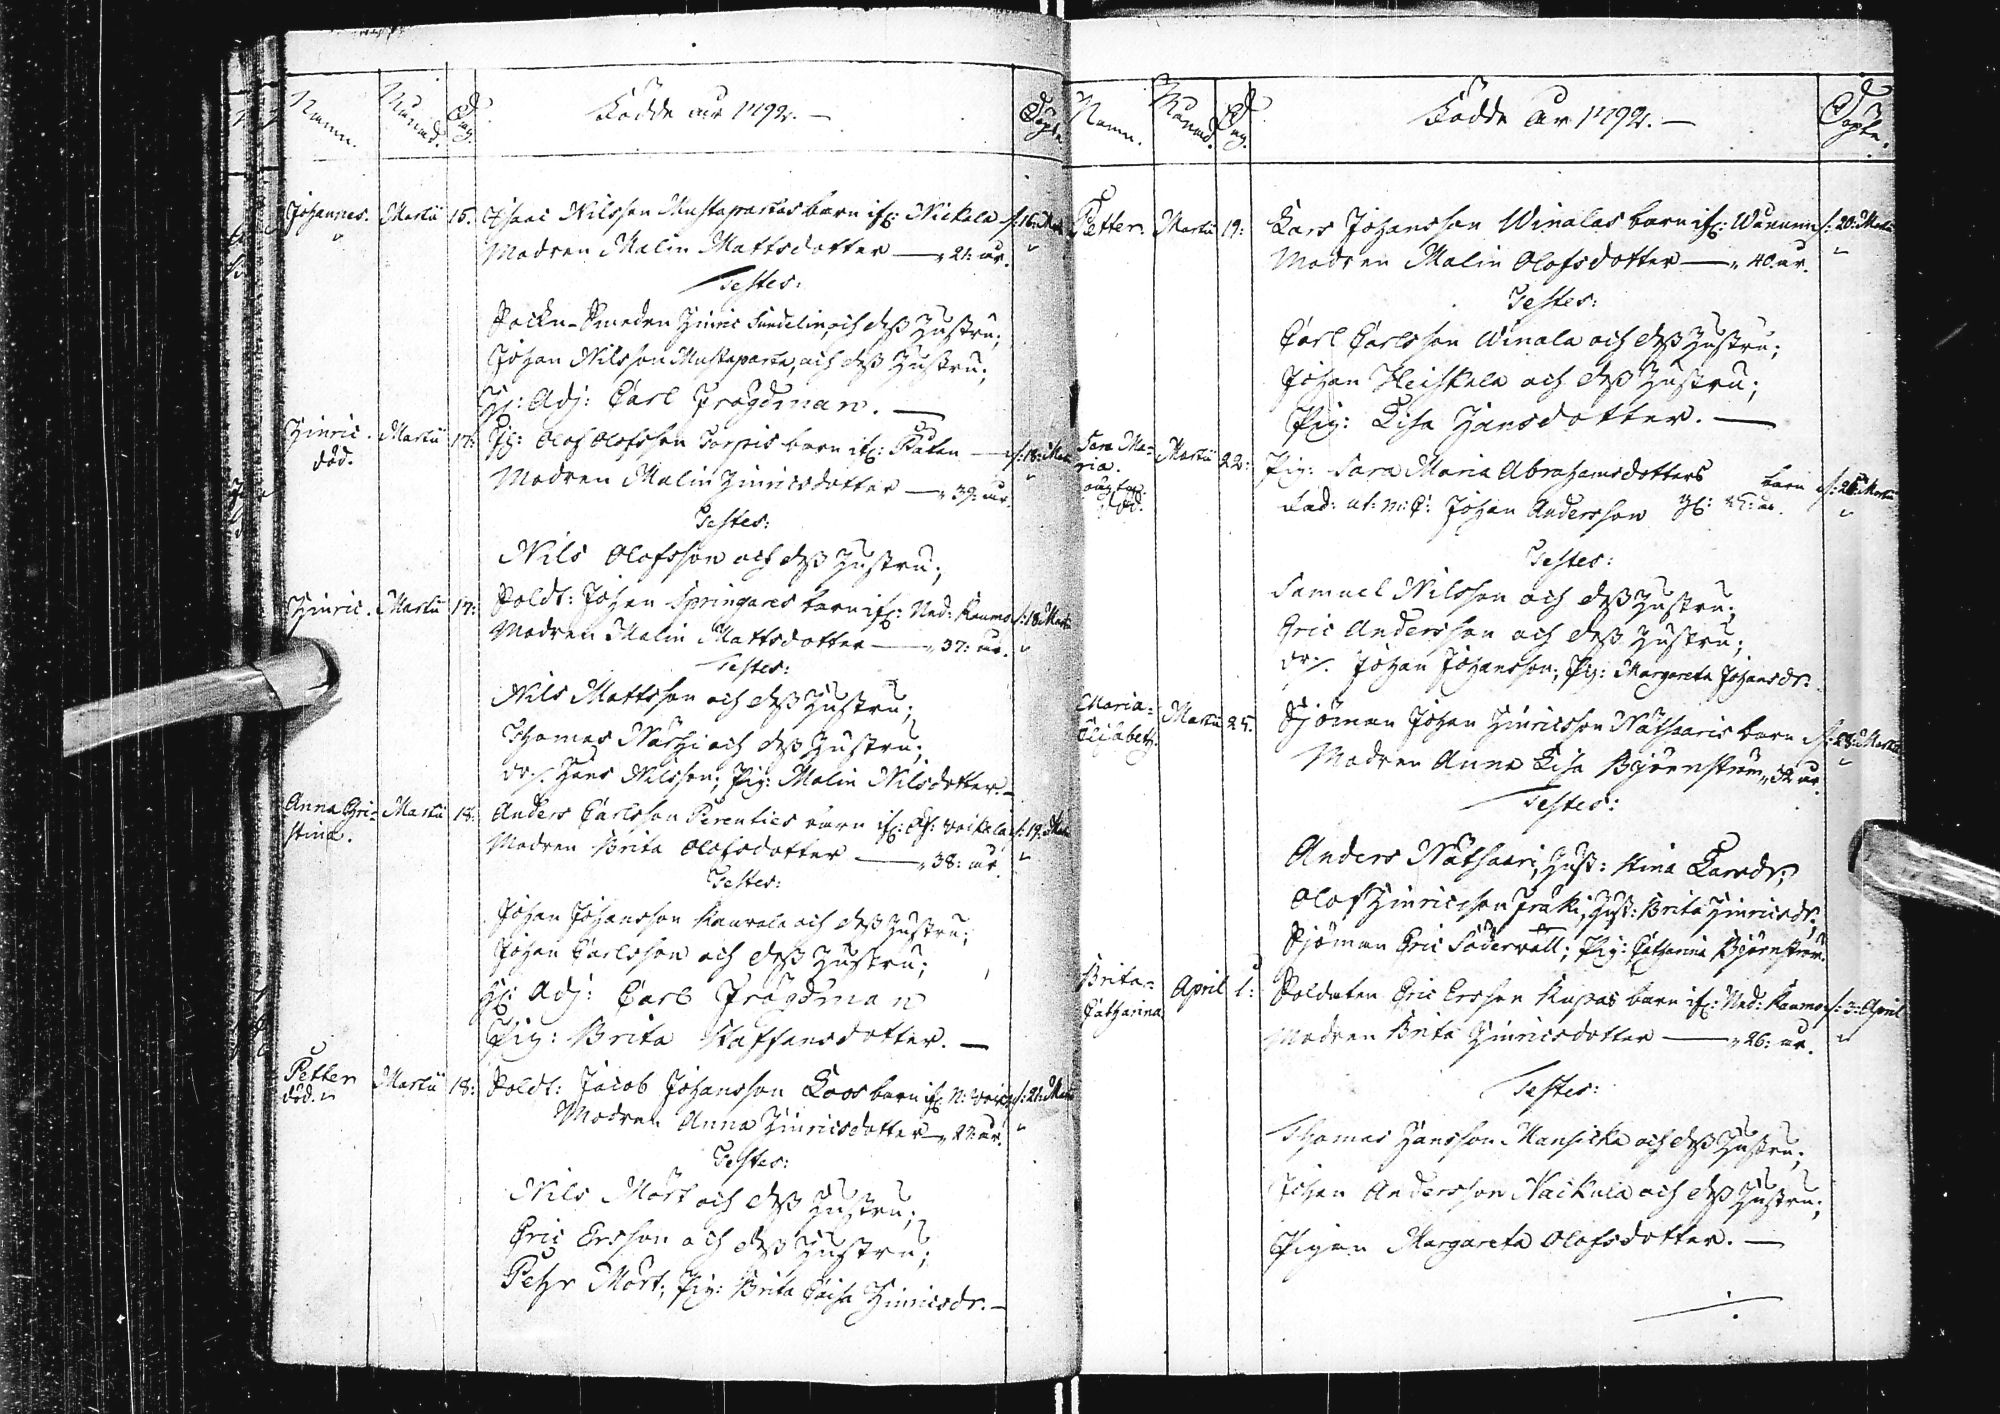 Namn. Månad. Dag. Födde åur 1792. — Döpte.
Johannes. Martii 15. Isaac Nilsson Mustapartas barn if: Nickala d: 16: Martii
Modren Malin Mattsdotter — 21: år.
Testes:
Sockn-Smeden Hinric Sundelin, och deß Hustru;
Johan Nilsson Mustaparta, och deß Hustru;
Adj: Carl Frogdman. —
Hinric. Martii 17: Olof Olofsson Sorpis barn if: d: 18: Martii
död. Modren Malin Hinricsdotter — 39: år.
Testes:
Nils Olofsson och deß Hustru;
Hinric. Martii 17: Soldt: Johan Springares barn if: Ned: Raumo d: 18 Martii
Modren Malin Mattsdotter — 37: år.
Testes:
Nils Mattsson och deß Hustru;
Thomas Närhi och deß Hustru;
dr: Hans Nilsson; Pig: Malin Nilsdotter. —
Anna Chri- Martii 18: Anders Carlsson barn if: d: 19: Martii
stina. Modren Brita Olofsdotter — 38: år.
Testes:
Johan Johansson och deß Hustru;
Johan Carlsson och deß Hustru;
Adj: Carl Frogdman
Pig: Brita Staffansdotter. —
Petter Martii 18: Soldt: Jacob Johansson Loos barn if: d: 21: Martii
död. Modren Anna Hinricsdotter år.
Testes:
Nils Mört och deß Hustru;
Eric Ersson och deß Hustru;
Pehr Mört; Pig: Brita Caisa Hinricsdr. —
Namn. Månad. Dag. Födde År 1792. — Döpte.
Petter: Martii 19: Lars Johansson Winalas barn if: d: 20: Martii
Modren Malin Olofsdotter — 40. år.
Testes:
Carl Carlsson Winala och deß Hustru;
Johan Heiskala och deß Hustru;
Pig: Lisa Hansdotter. —
Sara Ma- Martii 22: Pig: Sara Maria Abrahamsdotters barn d: Martii
ria. Johan Andersson
Testes:
Samuel Nilsson och deß Hustru;
Eric Andersson och deß Hustru;
dr: Johan Johansson; Pig: Margareta Johansdr.
Maria- Martii 25. Sjöman Johan Hinricsson Nätsaaris barn d: 28: Martii
Elisabeth. Modren Anna Lisa Björnström 32 år.
Testes:
Anders Nätsaari, Hust: Stina Larsdr;
Olof Hinricsson Fraki, Hust: Brita Hinricsdr;
Sjöman Eric Söderwall; Pig: Catharina Björnström.
Brita- April 1: Soldaten Eric Ersson Kupas barn if: Ned: Raumo d: 3: April
Catharina Modren Brita Hinricsdotter — 26: år.
Testes:
Thomas Hansson Mansicka och deß Hustru;
Johan Andersson Nackula och deß Hustru;
Pigan Margareta Olofsdotter. —